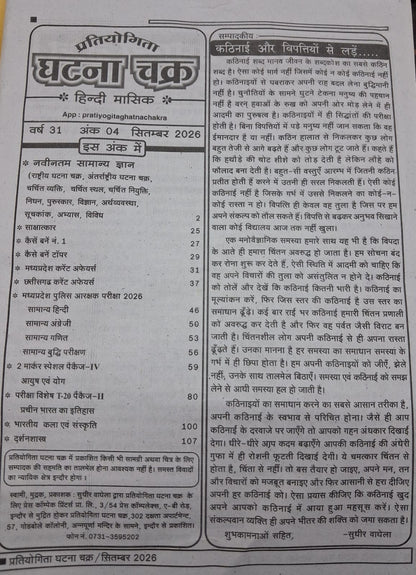 प्रतियोगिता
घटना चक्र
* हिन्दी मासिक *
App : pratiyogitaghatnachakra
वर्ष 31 अंक 04 सितम्बर 2026
इस अंक में
नवीनतम सामान्य ज्ञान
(राष्ट्रीय घटना चक्र, अंतर्राष्ट्रीय घटना चक्र,
चर्चित व्यक्ति, चर्चित स्थल, चर्चित नियुक्ति,
निधन, पुरस्कार, विज्ञान, अर्थव्यवस्था,
सूचकांक, अभ्यास, विविध 2
साक्षात्कार 25
कैसें बनें नं. 1 27
कैसे बनें टॉपर 29
मध्यप्रदेश करेंट अफेयर्स 31
छत्तीसगढ़ करेंट अफेयर्स 37
मध्यप्रदेश पुलिस आरक्षक परीक्षा 2026
सामान्य हिन्दी 46
सामान्य अंग्रेजी 50
सामान्य गणित 53
सामान्य बुद्धि परीक्षण 56
2 मार्कर स्पेशल पैकेज-IV 59
आयुष एवं योग
परीक्षा विशेष T-20 पैकेज-II 80
प्राचीन भारत का इतिहास
भारतीय कला एवं संस्कृति 100
दर्शनशास्त्र 107
प्रतियोगिता घटना चक्र में प्रकाशित किसी भी सामग्री अथवा चित्र के लिए
सम्पादक की सहमति का तालमेल होना आवश्यक नहीं है। समस्त विवादों
का न्यायिक क्षेत्र इन्दौर होगा।
स्वामी, मुद्रक, प्रकाशक : सुधीर वाघेला द्वारा प्रतियोगिता घटना चक्र के
लिए प्रेस कॉम्पेक प्रिंटर्स प्रा. लि., 3/54 प्रेस कॉम्पलेक्स, ए-बी रोड,
इन्दौर से मुद्रित होकर प्रतियोगिता घटना चक्र,302 दक्षता अपार्टमेन्ट,
57, गोडबोले कॉलोनी, अन्नपूर्णा मन्दिर के सामने, इन्दौर से प्रकाशित।
फोन नं.0731-3595202
प्रतियोगिता घटना चक्र/सितम्बर 2026
सम्पादकीय
कठिनाई और विपत्तियों से लड़ें.....
कठिनाई शब्द मानव जीवन के शब्दकोश का सबसे कठिन
शब्द है। ऐसा कोई मार्ग नहीं जिसमें कोई न कोई कठिनाई नहीं
हो। कठिनाइयों से घबराकर अपनी राह बदल लेना बुद्धिमानी
नहीं है। चुनौतियों के सामने घुटने टेकना मनुष्य की पहचान
नहीं है वरन् हवाओं के रुख को अपनी ओर मोड़ लेने में ही
आदमी का पुरुषत्व है। कठिनाइयों में ही सिद्धांतों की परीक्षा
होती है। बिना विपत्तियों में पड़े मनुष्य नहीं जान सकता कि वह
ईमानदार है या नहीं। कठिन हालात से निकलकर कुछ लोग
बहुत तेजी से आगे बढ़ते हैं और कुछ लोग टूट जाते हैं। कहते हैं
कि हथौड़े की चोट शीशे को तोड़ देती है लेकिन लोहे को
फौलाद बना देती है। बहुत-सी वस्तुएँ आरम्भ में जितनी कठिन
प्रतीत होती हैं करने में उतनी ही सरल निकलती हैं। ऐसी कोई
कठिनाई नहीं है जिसके गर्भ में उससे निकलने का कोई-न-
कोई रास्ता न हो। विपत्ति ही केवल वह तुला है जिस पर हम
अपने संकल्प को तौल सकते हैं। विपत्ति से बढ़कर अनुभव सिखाने
वाला कोई विद्यालय आज तक नहीं खुला।
एक मनोवैज्ञानिक समस्या हमारे साथ यह भी है कि विपदा
के आते ही हमारा चिंतन अवरुद्ध हो जाता है। हम सोचना बंद
कर रोना शुरू कर देते हैं, ऐसी स्थिति में आदमी को चाहिए कि
वह अपने विचारों की तुला को असंतुलित न होने दे। कठिनाई
को तोलें और देखें कि कठिनाई कितनी भारी है। कठिनाई का
मूल्यांकन करें, फिर जिस स्तर की कठिनाई है उस स्तर का
समाधान ढूँढें। कई बार राई भर कठिनाई हमारी चिंतन प्रणाली
को अवरुद्ध कर देती है और फिर वह पर्वत जैसी विराट बन
जाती है। चिंतनशील लोग अपनी कठिनाई से ही अपना रास्ता
ढूँढते हैं। उनका मानना है हर समस्या का समाधान समस्या के
गर्भ में ही छिपा होता है। हम अपनी कठिनाइयों को जीएँ, झेलें
नहीं, उनके साथ तालमेल बिठाएँ। समस्या एवं कठिनाई को समझ
लेने से आधी समस्या हल हो जाती है।
कठिनाइयों का समाधान करने का सबसे आसान तरीका है,
अपनी कठिनाई के स्वभाव से परिचित होना। जैसे ही आप
कठिनाई के दरवाजे पर जाएँगे तो आपको गहन अंधकार दिखाई
देगा। धीरे-धीरे आप कदम बढ़ाएँगे आपकी कठिनाई की अंधेरी
गुफा में ही रोशनी फूटती दिखाई देगी। ये चमत्कार चिंतन से
होता है, चिंता से नहीं। तो बस तैयार हो जाइए, अपने मन, तन
और विचारों को मजबूत बनाइए और फिर आसानी से हरा दीजिए
अपनी हर कठिनाई को। ऐसा प्रयास कीजिए कि कठिनाई खुद
अपने आपको कठिनाई में आया हुआ महसूस करें। ऐसा
संकल्पवान व्यक्ति ही अपने भीतर की शक्ति को जगा सकता है।
शुभकामनाओं सहित, -सुधीर वाघेला